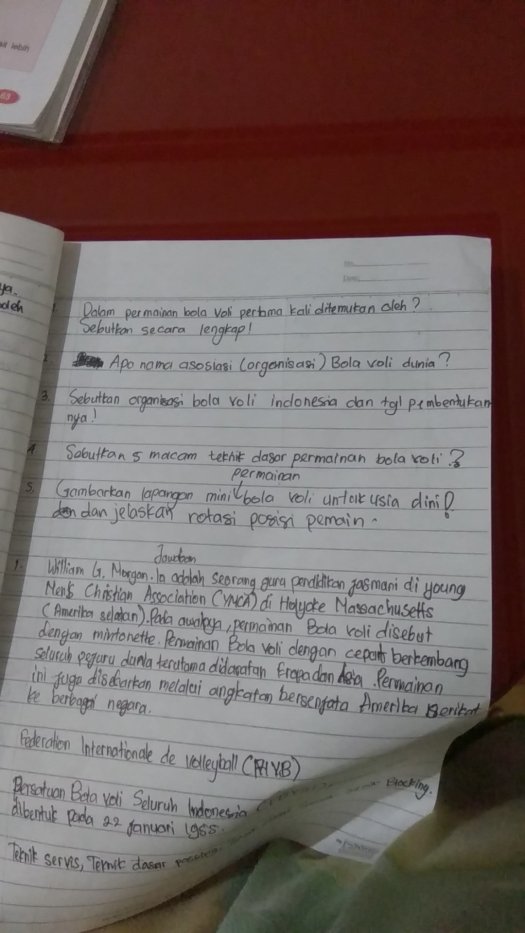 63
ya.
oleh
Dalam permainan bola voli pertama kali ditemukan oleh?
Sebutkan secara lengkap!
2. Apa nama asosiasi (organisasi) Bola voli dunia?
3. Sebutkan organisasi bola voli indonesia dan tgl pembentukan
nya!
4. Sebutkan 5 macam teknik dasar permainan bola voli?
permainan
5. Gambarkan lapangan mini bola voli untuk usia dini!
dan jelaskan rotasi posisi pemain.
Jawaban
1. William G. Morgan. Ia adalah seorang guru pendidikan jasmani di young
Men's Christian Association (YMCA) di Holyoke Massachusetts
(Amerika selatan). Pada awalnya, permainan Bola voli disebut
dengan mintonette. Permainan Bola voli dengan cepat berkembang
seluruh penjuru dunia terutama didaratan Eropa dan Asia. Permainan
ini juga disebarkan melalui angkatan bersenjata Amerika Serikat
ke berbagai negara.
Federation Internationale de Volleyball (FIVB)
Persatuan Bola voli Seluruh Indonesia
dibentuk pada 22 Januari 1955.
Teknik servis, Teknik dasar Blocking.